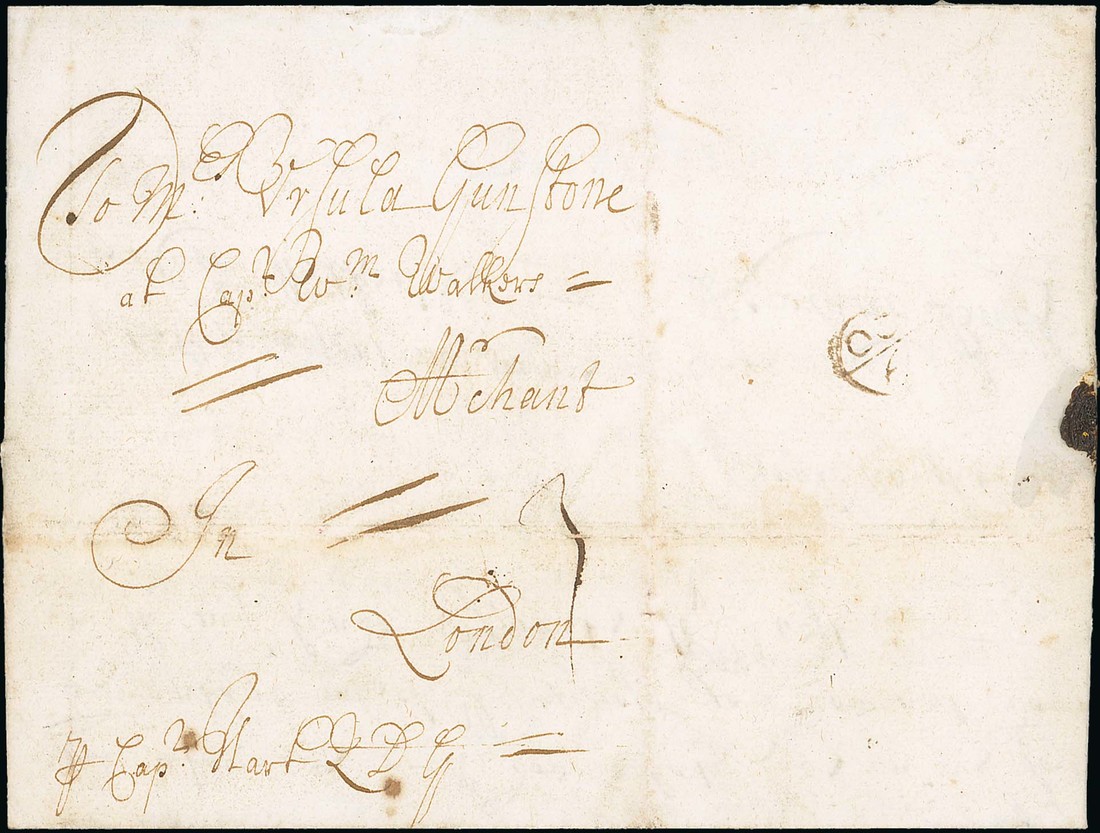 To Mrs: Ursula Gunstone
at Capt: Wm: Walkers =
Mrchant
In
London
Capr: Hart Q D G